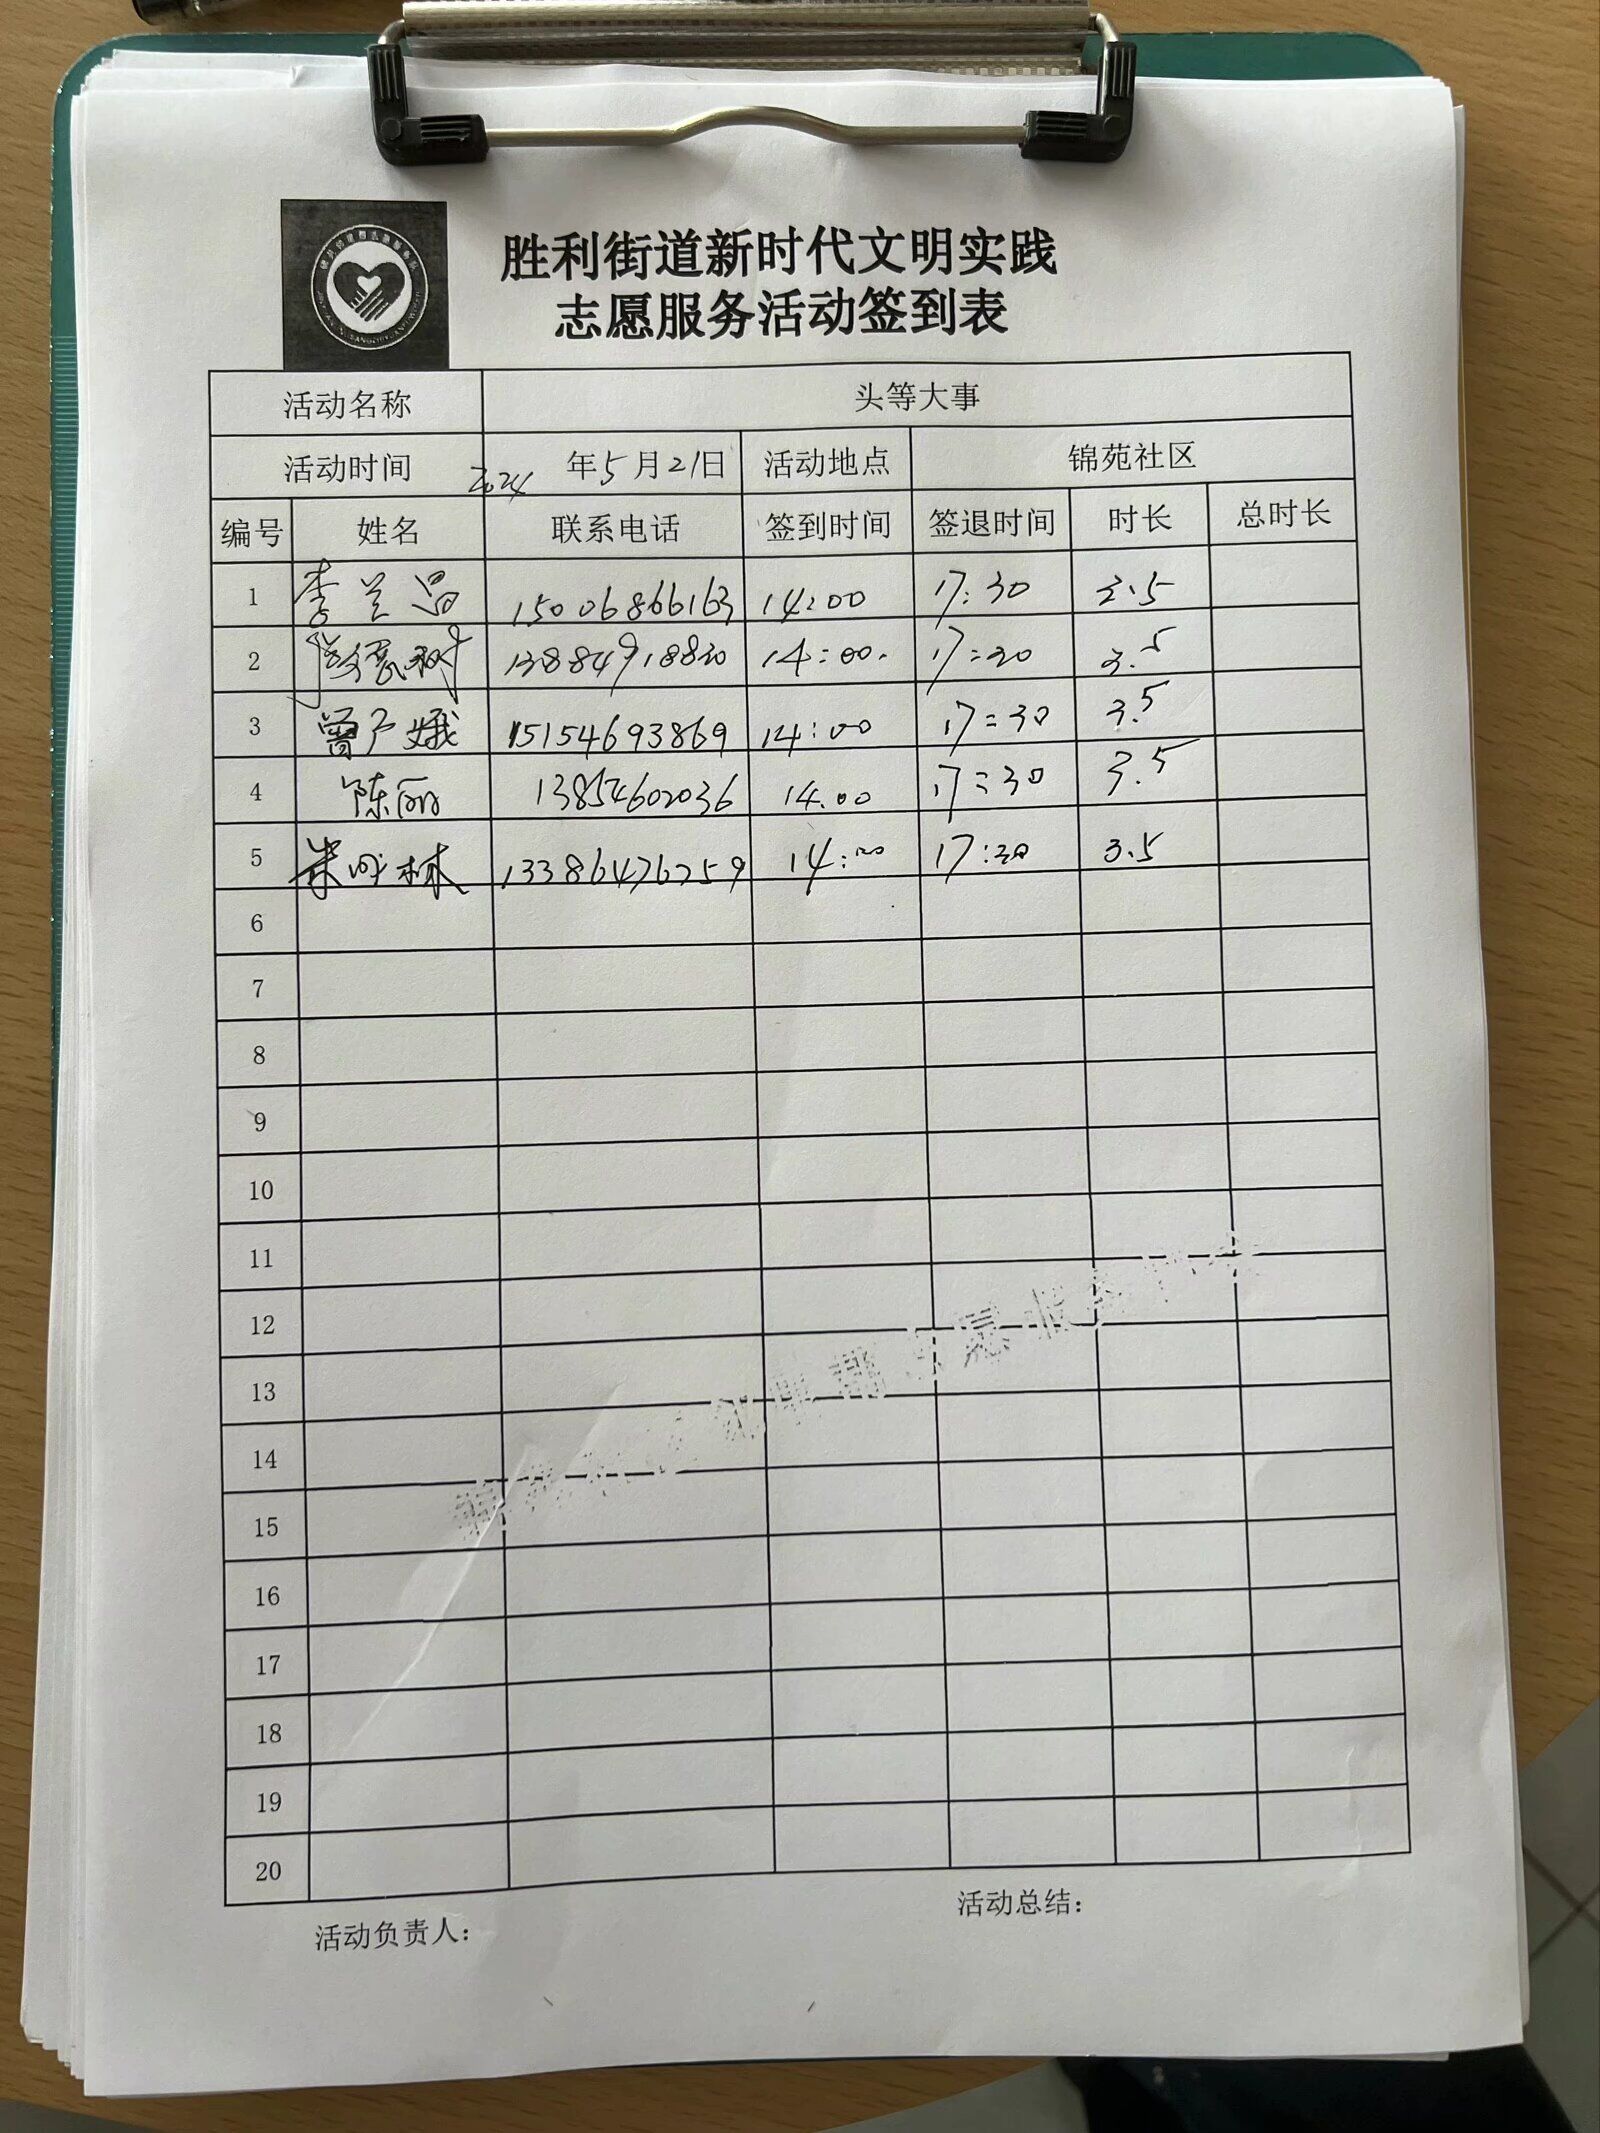 胜利街道新时代文明实践
志愿服务活动签到表
活动名称 头等大事
活动时间 2024 年5月21日 活动地点 锦苑社区
编号 姓名 联系电话 签到时间 签退时间 时长 总时长
1 李兰昌 15006866163 14:00 17:30 3.5
2 13884918830 14:00. 17:30 3.5
3 曾广娥 15154693869 14:00 17:30 3.5
4 陈丽 13854602036 14.00 17:30 3.5
5 林 13386476259 14:00 17:30 3.5
6
7
8
9
10
11
12
13
14
15
16
17
18
19
20
活动负责人： 活动总结：